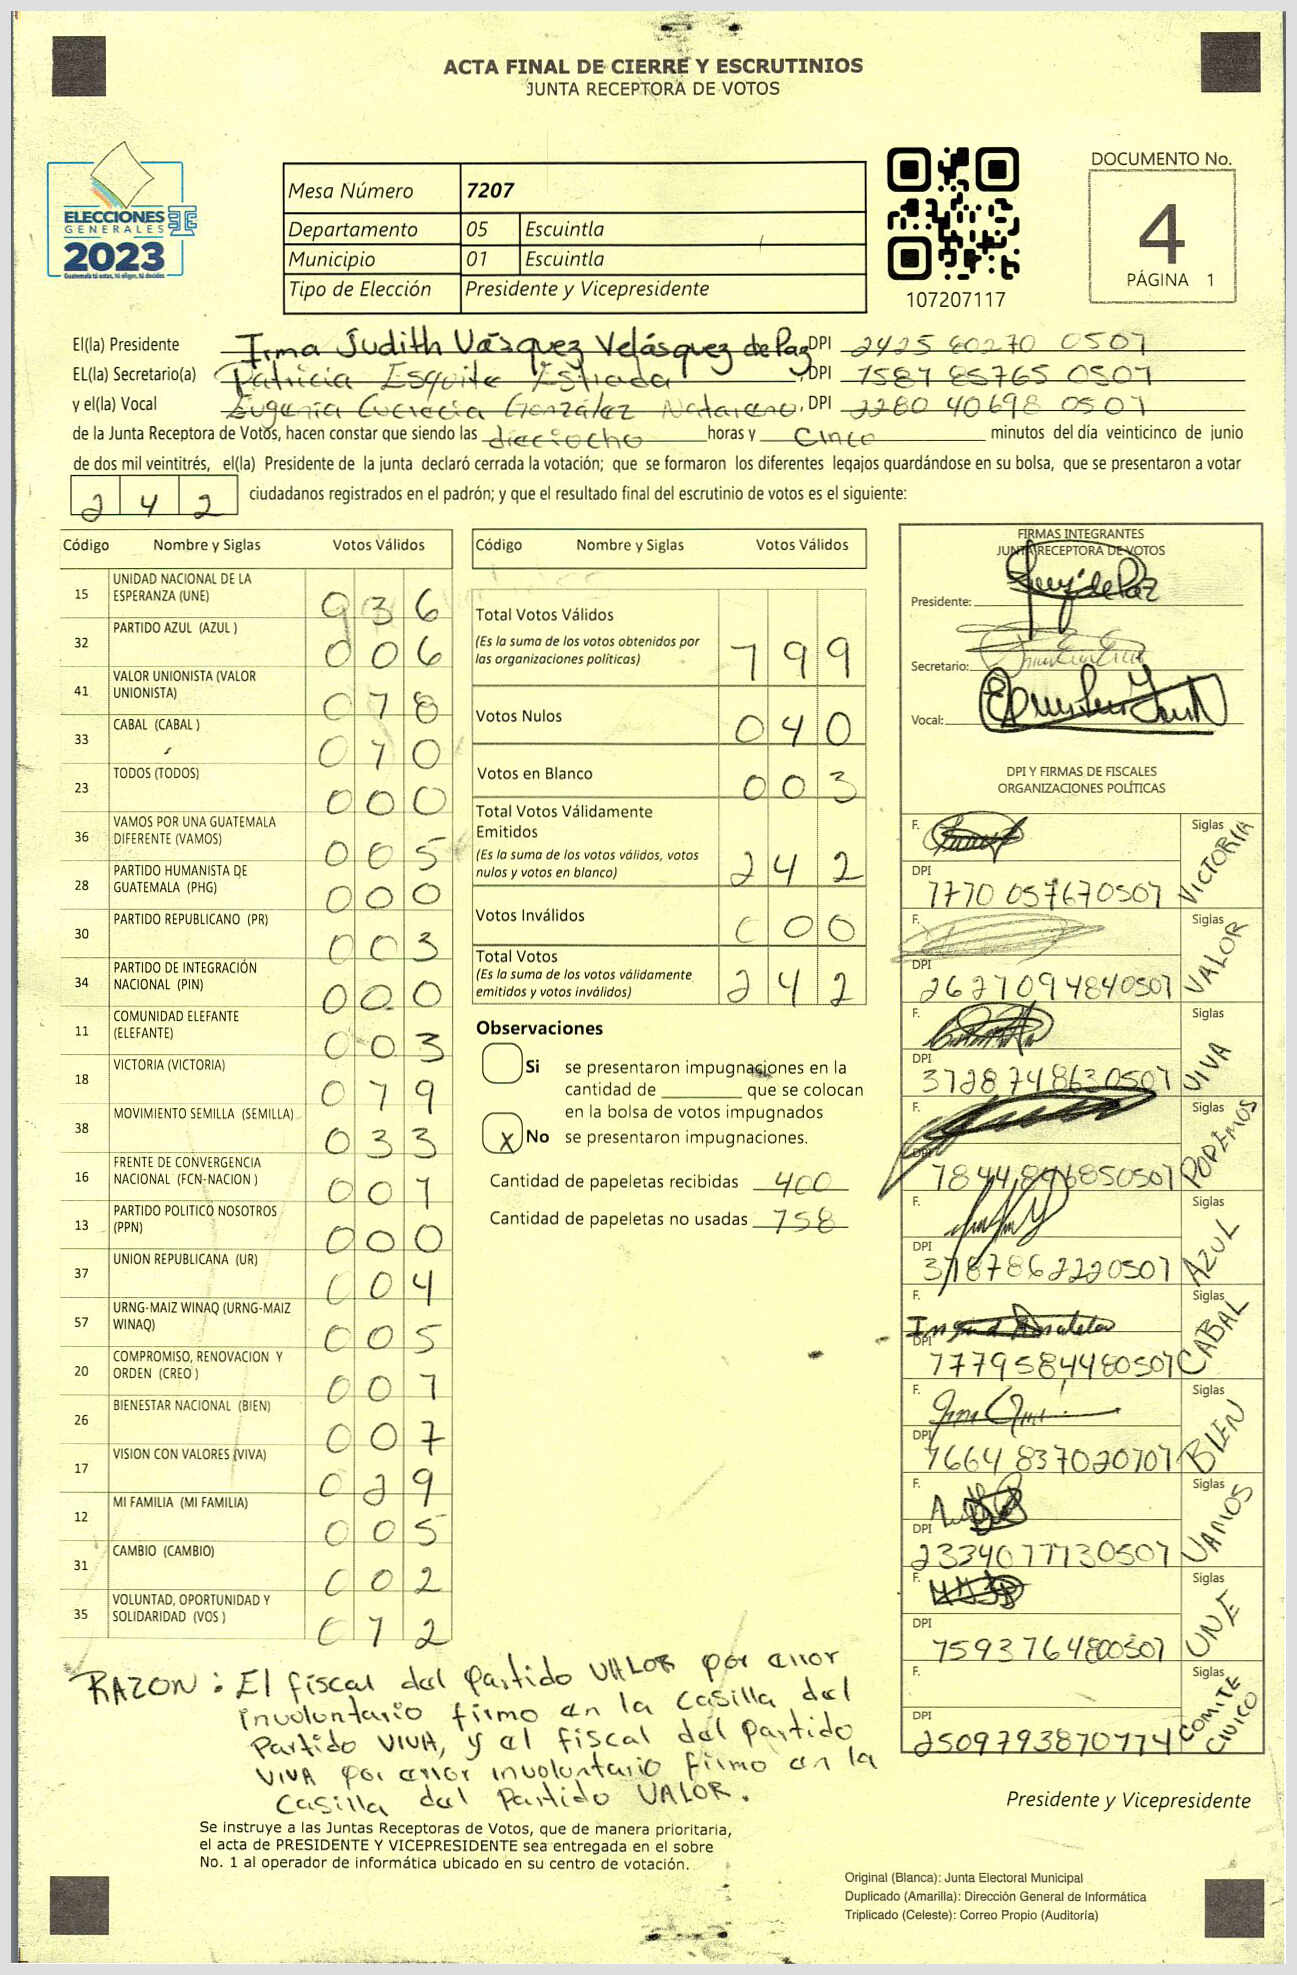 ACTA FINAL DE CIERRE Y ESCRUTINIOS
JUNTA RECEPTORA DE VOTOS
ELECCIONES
GENERALES
2023
Guatemala tú estas, tú eliges, tú decides
Mesa Número 7207
Departamento 05 Escuintla
Municipio 01 Escuintla
Tipo de Elección Presidente y Vicepresidente
107207117
DOCUMENTO No.
4
PÁGINA 1
El(la) Presidente Irma Judith Vásquez Velásquez de Paz DPI 2425 80270 0507
EL(la) Secretario(a) Patricia Esquite Estrada, DPI 1587 85765 0507
y el(la) Vocal Eugenia Lucrecia González Natareno, DPI 2280 40698 0507
de la Junta Receptora de Votos, hacen constar que siendo las dieciocho horas y cinco minutos del día veinticinco de junio
de dos mil veintitrés, el(la) Presidente de la junta declaró cerrada la votación; que se formaron los diferentes legajos guardándose en su bolsa, que se presentaron a votar
242 ciudadanos registrados en el padrón; y que el resultado final del escrutinio de votos es el siguiente:
Código Nombre y Siglas Votos Válidos
15 UNIDAD NACIONAL DE LA ESPERANZA (UNE) 036
32 PARTIDO AZUL (AZUL ) 006
41 VALOR UNIONISTA (VALOR UNIONISTA) 018
33 CABAL (CABAL ) 010
23 TODOS (TODOS) 000
36 VAMOS POR UNA GUATEMALA DIFERENTE (VAMOS) 005
28 PARTIDO HUMANISTA DE GUATEMALA (PHG) 000
30 PARTIDO REPUBLICANO (PR) 003
34 PARTIDO DE INTEGRACIÓN NACIONAL (PIN) 000
11 COMUNIDAD ELEFANTE (ELEFANTE) 003
18 VICTORIA (VICTORIA) 019
38 MOVIMIENTO SEMILLA (SEMILLA) 033
16 FRENTE DE CONVERGENCIA NACIONAL (FCN-NACION ) 001
13 PARTIDO POLITICO NOSOTROS (PPN) 000
37 UNION REPUBLICANA (UR) 004
57 URNG-MAIZ WINAQ (URNG-MAIZ WINAQ) 005
20 COMPROMISO, RENOVACION Y ORDEN (CREO ) 001
26 BIENESTAR NACIONAL (BIEN) 007
17 VISION CON VALORES (VIVA) 029
12 MI FAMILIA (MI FAMILIA) 005
31 CAMBIO (CAMBIO) 002
35 VOLUNTAD, OPORTUNIDAD Y SOLIDARIDAD (VOS ) 012
Código Nombre y Siglas Votos Válidos
Total Votos Válidos
(Es la suma de los votos obtenidos por
las organizaciones políticas) 199
Votos Nulos 040
Votos en Blanco 003
Total Votos Válidamente
Emitidos
(Es la suma de los votos válidos, votos
nulos y votos en blanco) 242
Votos Inválidos 000
Total Votos
(Es la suma de los votos válidamente
emitidos y votos inválidos) 242
Observaciones
Si se presentaron impugnaciones en la
cantidad de ________ que se colocan
en la bolsa de votos impugnados
X No se presentaron impugnaciones.
Cantidad de papeletas recibidas 400
Cantidad de papeletas no usadas 158
FIRMAS INTEGRANTES
JUNTA RECEPTORA DE VOTOS
Presidente:
Secretario:
Vocal:
DPI Y FIRMAS DE FISCALES
ORGANIZACIONES POLÍTICAS
F. Siglas VICTORIA
DPI 1770 057670507
F. Siglas VALOR
DPI 2627094840507
F. Siglas VIVA
DPI 3128748630507
F. Siglas PODEMOS
DPI 1844896850507
F. Siglas AZUL
DPI 3187862220507
F. Siglas CABAL
DPI 1779584480507
F. Siglas BIEN
DPI 1664 837020101
F. Siglas VAMOS
DPI 2334077730507
F. Siglas UNE
DPI 1593764800507
F. Siglas COMITE CIVICO
DPI 2509793870114
RAZON: El fiscal del partido VALOR por error
involuntario firmo en la casilla del
Partido VIVA, y el fiscal del partido
VIVA por error involuntario firmo en la
casilla del Partido VALOR.
Presidente y Vicepresidente
Se instruye a las Juntas Receptoras de Votos, que de manera prioritaria,
el acta de PRESIDENTE Y VICEPRESIDENTE sea entregada en el sobre
No. 1 al operador de informática ubicado en su centro de votación.
Original (Blanca): Junta Electoral Municipal
Duplicado (Amarilla): Dirección General de Informática
Triplicado (Celeste): Correo Propio (Auditoría)